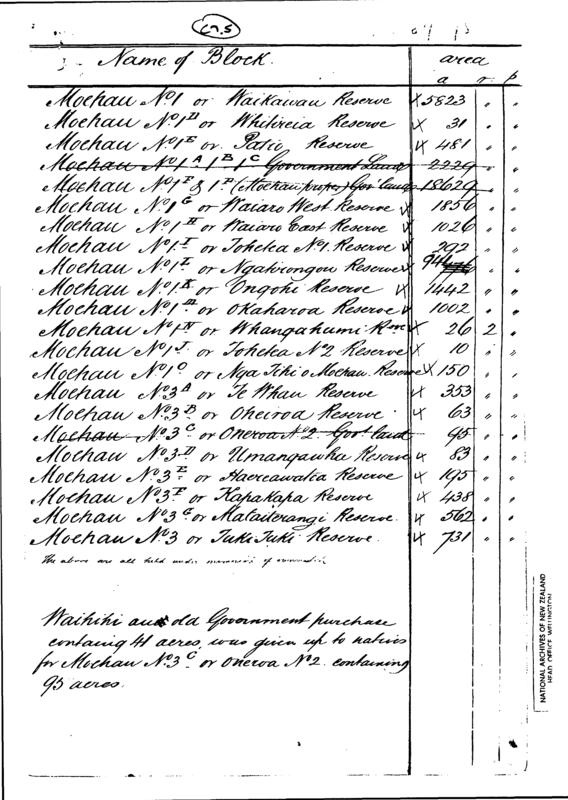 C7.5
Name of Block. area
a r p
Moehau No 1 or Waikawau Reserve x 5823 " "
Moehau No 1 D or Whitireia Reserve x 31 " "
Moehau No 1 E or Patio Reserve x 481 " "
Moehau No 1 A 1 B 1 C Government Land 2229 " "
Moehau No 1 F & 1 P (Moehau proper) Gov land 18629 " "
Moehau No 1 G or Waiaro West Reserve x 1856 " "
Moehau No 1 H or Waiaro East Reserve x 1026 " "
Moehau No 1 I or Tohetea No 1. Reserve x 292 " "
Moehau No 1 L or Ngatirongou Reserve x 94 " "
Moehau No 1 K or Ongohi Reserve x 1442 " "
Moehau No 1 M or Okaharoa Reserve x 1002 " "
Moehau No 1 N or Whangahumi Rve x 26 2 "
Moehau No 1 J. or Tohetea No 2 Reserve x 10 " "
Moehau No 1 O or Nga Tihi o Moehau. Reserve x 150 " "
Moehau No 3 A or Te Whau Reserve x 353 " "
Moehau No 3 B or Oheiroa Reserve x 63 " "
Moehau No 3 C or Oneroa No 2. Govt land 95 " "
Moehau No 3 D or Umangawha Reserve x 83 " "
Moehau No 3 E or Haereawatea Reserve x 195 " "
Moehau No 3 F or Kapakapa Reserve x 438 " "
Moehau No 3 G or Mataiterangi Reserve. x 562 " "
Moehau No 3 or TukiTuki Reserve. x 731 " "
The above are all held under
Waihihi an old Government purchase
containg 41 acres, was given up to natives
for Moehau No 3 C or Oneroa No 2. containing
95 acres.
NATIONAL ARCHIVES OF NEW ZEALAND
HEAD OFFICE WELLINGTON